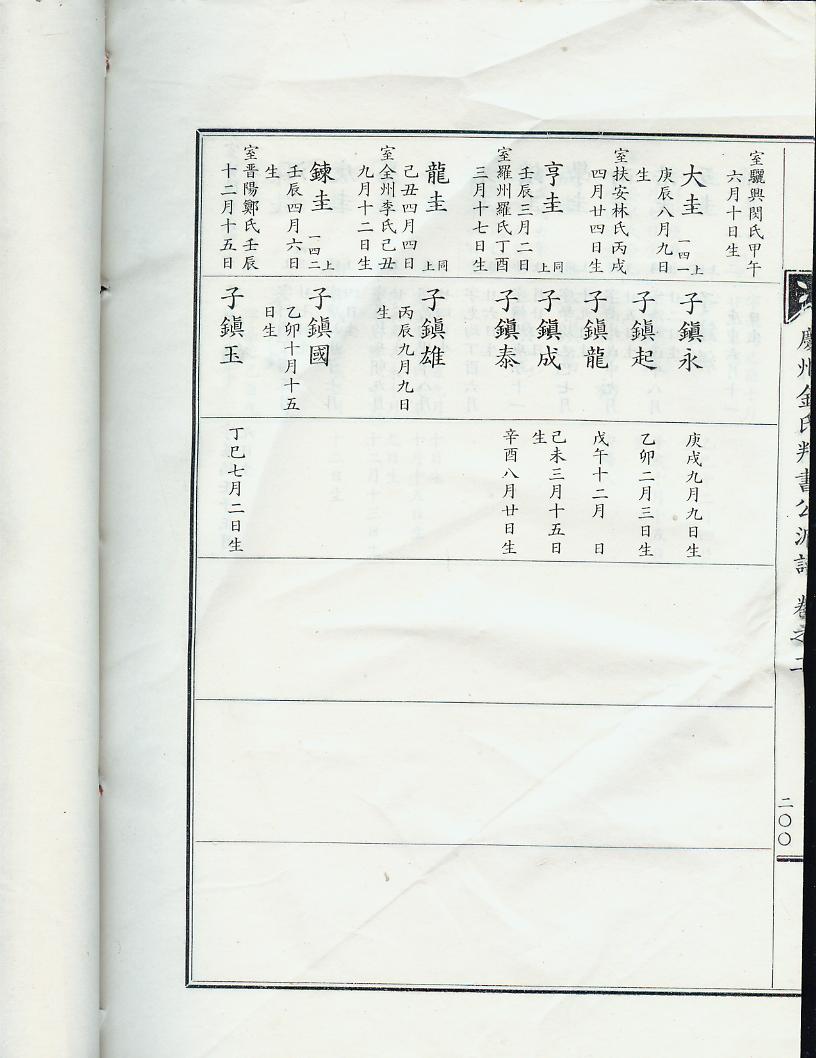 室驪興閔氏甲午
六月十日生
大圭
上
一四一
庚辰八月九日
生
室扶安林氏丙戌
四月廿四日生
亨圭
同
上
壬辰三月二日
室羅州羅氏丁酉
三月十七日生
龍圭
同
上
己丑四月四日
室全州李氏己丑
九月十二日生
鍊圭
上
一四二
壬辰四月六日
生
室晋陽鄭氏壬辰
十二月十五日
子鎭永
子鎭起
子鎭龍
子鎭成
子鎭泰
子鎭雄
丙辰九月九日
生
子鎭國
乙卯十月十五
日生
子鎭玉
庚戌九月九日生
乙卯二月三日生
戊午十二月 日
己未三月十五日
生
辛酉八月廿日生
丁巳七月二日生
慶州金氏判書公派譜 卷之二
二〇〇